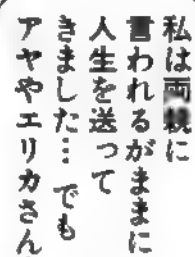 私は両親に
言われるがままに
人生を送って
きました… でも
アヤやエリカさん